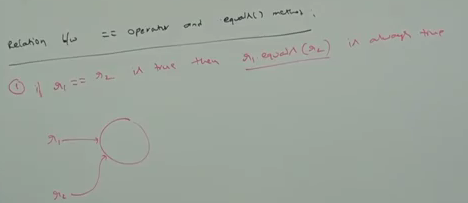 Relation b/w == operator and equals() method.
① if r1 == r2 is true then r1 equals(r2) is always true
r1
r2